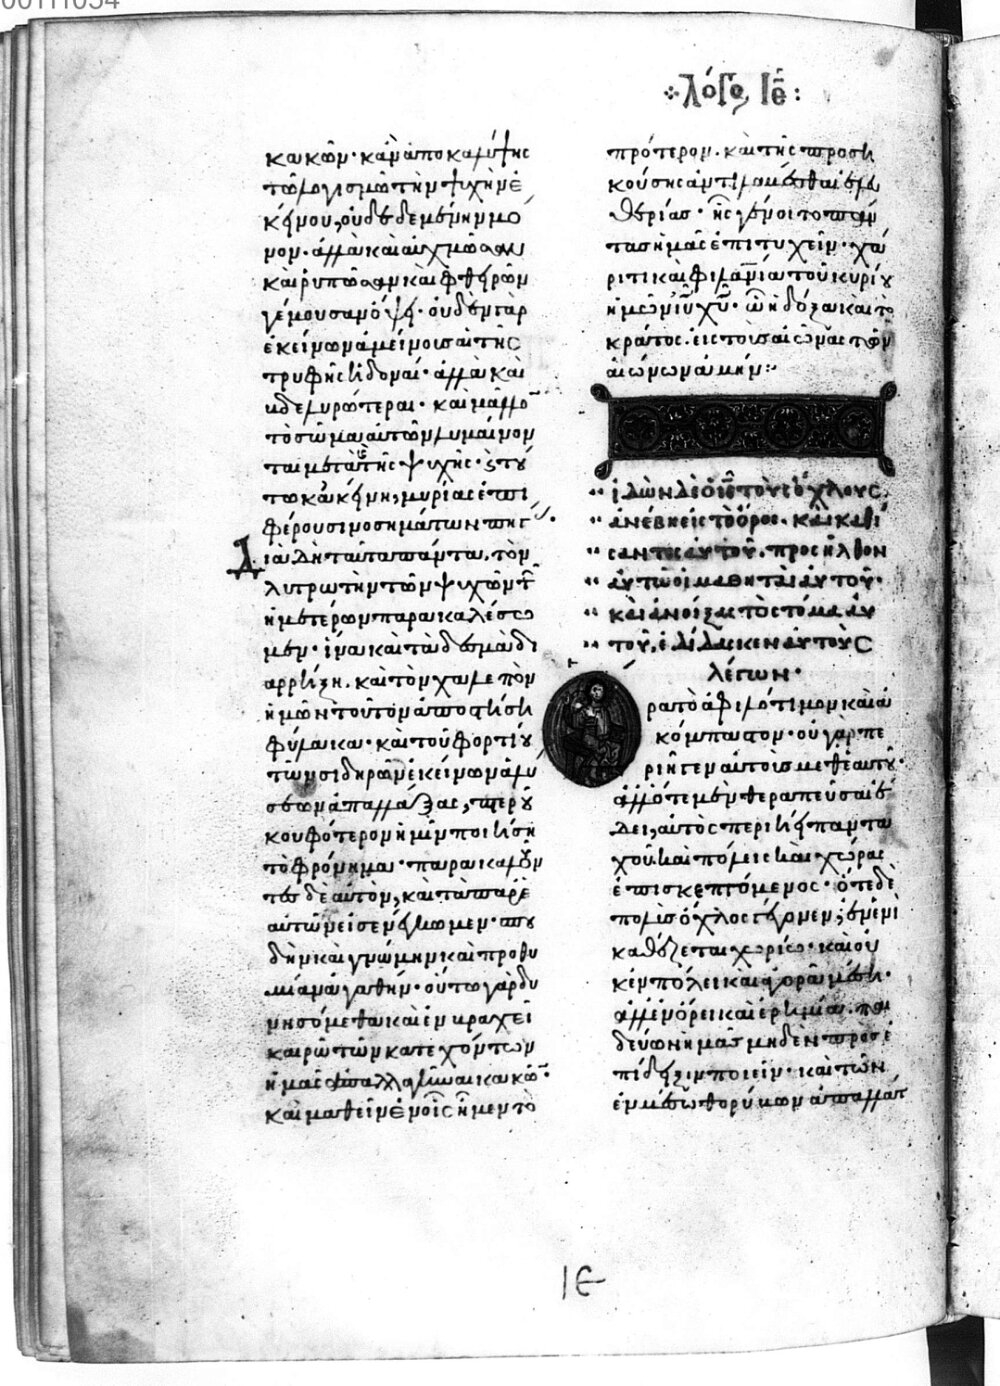 00111054
λόγος ιε:
κακῶν· κἂν ἀποκαλύψης
τῶ λογισμῶ τὴν ψυχὴν ἐ
κείνου, οὐδὲ δεμένην μό
νον· ἀλλὰ καὶ αὐχμῶσαν
καὶ ῥυπῶσαν καὶ φθειρῶν
γέμουσαν ὄψει· οὐδὲν γὰρ
ἐκείνων ἀμείνους αἱ τῆς
τρυφῆς ἡδοναί· ἀλλὰ καὶ
βδελυρώτεραι· καὶ μᾶλλον
τὸ σῶμα αὐτῶν λυμαίνον
ται μετὰ τῆς ψυχῆς· ἐς τού
τω κἀκείνη, μυρίας ἐπι
φέρουσι νοσημάτων πληγάς.
Διὰ δὴ ταῦτα πάντα, τὸν
λυτρωτὴν τῶν ψυχῶν τῶν
ἡμετέρων παρακαλέσω
μεν· ἵνα καὶ τὰ δεσμὰ δι
αρρήξη. καὶ τὸν χαλεπὸν
ἡμῶν τοῦτον ἀποστήση
φύλακα· καὶ τοῦ φορτίου
τῶν σιδηρῶν ἐκείνων ἁλύ
σεων ἀπαλλάξας, πτεροῦ
κουφότερον ἡμῖν ποιήση
τὸ φρόνημα· παρακαλοῦν
τες δὲ αὐτὸν, καὶ τὰ παρ' ἑ
αυτῶν εἰσενέγκωμεν· σπου
δὴν καὶ γνώμην καὶ προθυ
μίαν ἀγαθήν· οὕτω γὰρ δυ
νησόμεθα καὶ ἐν βραχεῖ
καιρῶ τῶν κατεχόντων
ἡμᾶς ἀπαλλαγῆναι κακῶν·
καὶ μαθεῖν ἐν οἷς ἦμεν τὸ
πρότερον. καὶ τῆς προση
κούσης ἀντιλαμβέσθαι ἐλευ
θερίας· ἧς γένοιτο πάν
τας ἡμᾶς ἐπιτυχεῖν· χά
ριτι καὶ φιλανίαι τοῦ κυρίου
ἡμῶν ιυ χυ· ὧ ἡ δόξα καὶ τὸ
κράτος. εἰς τοὺς αἰῶνας τῶν
αἰώνων ἀμήν:
ἰδὼν δὲ ὁ ις τοὺς ὄχλους,
ἀνέβη εἰς τὸ ὄρος· καὶ καθί
σαντος αὐτοῦ. προσῆλθον
αὐτῶ οἱ μαθηταὶ αὐτοῦ·
καὶ ἀνοίξας τὸ στόμα αὐ
τοῦ, ἐδίδασκεν αὐτοὺς
λέγων·
Ὅρα τὸ ἀφιλότιμον καὶ ἀ
κόμπαστον· οὐ γὰρ πε
ριῆγεν αὐτοὺς μεθ' ἑαυτοῦ·
ἀλλ' ὅτε μὲν θεραπεῦσαι ἔ
δει, αὐτὸς περιήει πάντα
χοῦ καὶ πόλεις καὶ χώρας
ἐπισκεπτόμενος· ὅτε δὲ
πολὺς ὄχλος γέγονεν, ἐν ἑνὶ
καθέζεται χωρίω· καὶ οὐ
κ' ἐν πόλει καὶ ἀγορᾶ μέση·
ἀλλ' ἐν ὄρει καὶ ἐρημία. παι
δεύων ἡμᾶς μηδὲν πρὸς ἐ
πίδειξιν ποιεῖν· καὶ τῶν
ἐν μέσω θορύβων ἀπαλλάτ
ιε